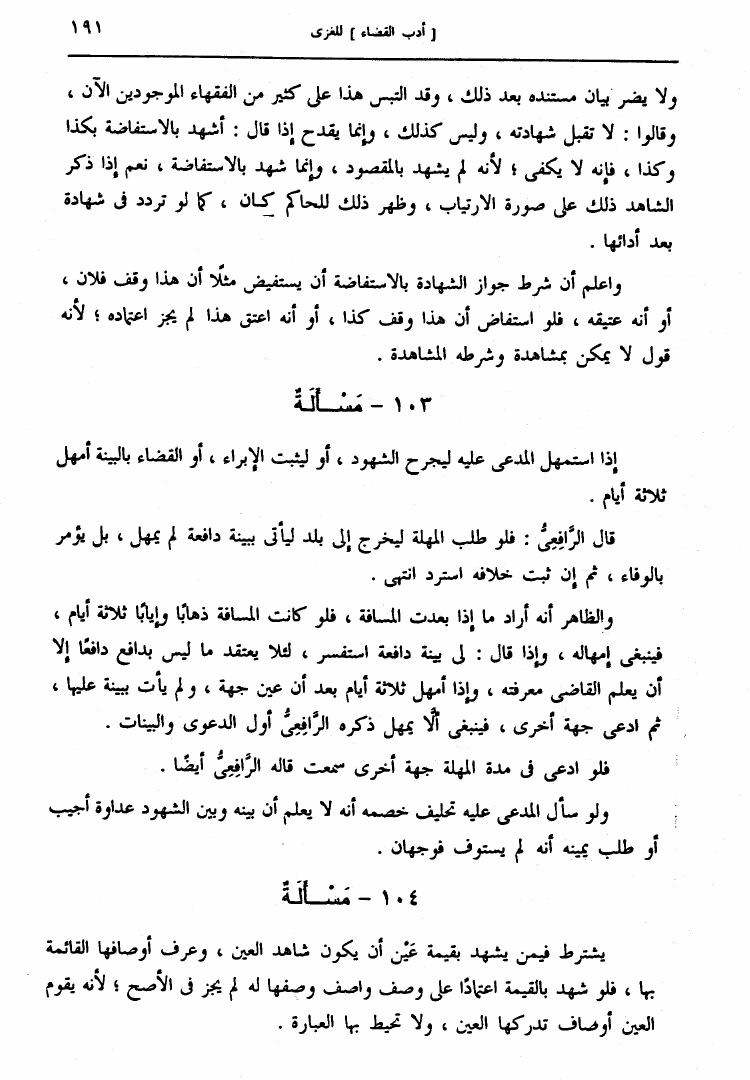 ١٩١
[ أدب القضاء ] للغزى
ولا يضر بيان مستنده بعد ذلك ، وقد التبس هذا على كثير من الفقهاء الموجودين الآن ،
وقالوا : لا تقبل شهادته ، وليس كذلك ، وإنما يقدح إذا قال : أشهد بالاستفاضة بكذا
وكذا ، فإنه لا يكفى ؛ لأنه لم يشهد بالمقصود ، وإنما شهد بالاستفاضة ، نعم إذا ذكر
الشاهد ذلك على صورة الارتياب ، وظهر ذلك للحاكم كان ، كما لو تردد فى شهادة
بعد أدائها .
واعلم أن شرط جواز الشهادة بالاستفاضة أن يستفيض مثلًا أن هذا وقف فلان ،
أو أنه عتيقه ، فلو استفاض أن هذا وقف كذا ، أو أنه اعتق هذا لم يجز اعتماده ؛ لأنه
قول لا يمكن بمشاهدة وشرطه المشاهدة .
١٠٣ - مَسْـــأَلَـةٌ
إذا استمهل المدعى عليه ليجرح الشهود ، أو ليثبت الإبراء ، أو القضاء بالبينة أمهل
ثلاثة أيام .
قال الرَّافِعِىُّ : فلو طلب المهلة ليخرج إلى بلد ليأتى ببينة دافعة لم يمهل ، بل يؤمر
بالوفاء ، ثم إن ثبت خلافه استرد انتهى .
والظاهر أنه أراد ما إذا بعدت المسافة ، فلو كانت المسافة ذهابًا وإيابًا ثلاثة أيام ،
فينبغى إمهاله ، وإذا قال : لى بينة دافعة استفسر ، لئلا يعتقد ما ليس بدافع دافعًا إلا
أن يعلم القاضى معرفته ، وإذا أمهل ثلاثة أيام بعد أن عين جهة ، ولم يأت ببينة عليها ،
ثم ادعى جهة أخرى ، فينبغى ألَّا يمهل ذكره الرَّافِعِىُّ أول الدعوى والبينات .
فلو ادعى فى مدة المهلة جهة أخرى سمعت قاله الرَّافِعِىُّ أيضًا .
ولو سأل المدعى عليه تحليف خصمه أنه لا يعلم أن بينه وبين الشهود عداوة أجيب
أو طلب يمينه أنه لم يستوف فوجهان .
١٠٤ - مَسْـــأَلَـةٌ
يشترط فيمن يشهد بقيمة عَيْن أن يكون شاهد العين ، وعرف أوصافها القائمة
بها ، فلو شهد بالقيمة اعتمادًا على وصف واصف وصفها له لم يجز فى الأصح ؛ لأنه يقوم
العين أوصاف تدركها العين ، ولا تحيط بها العبارة .